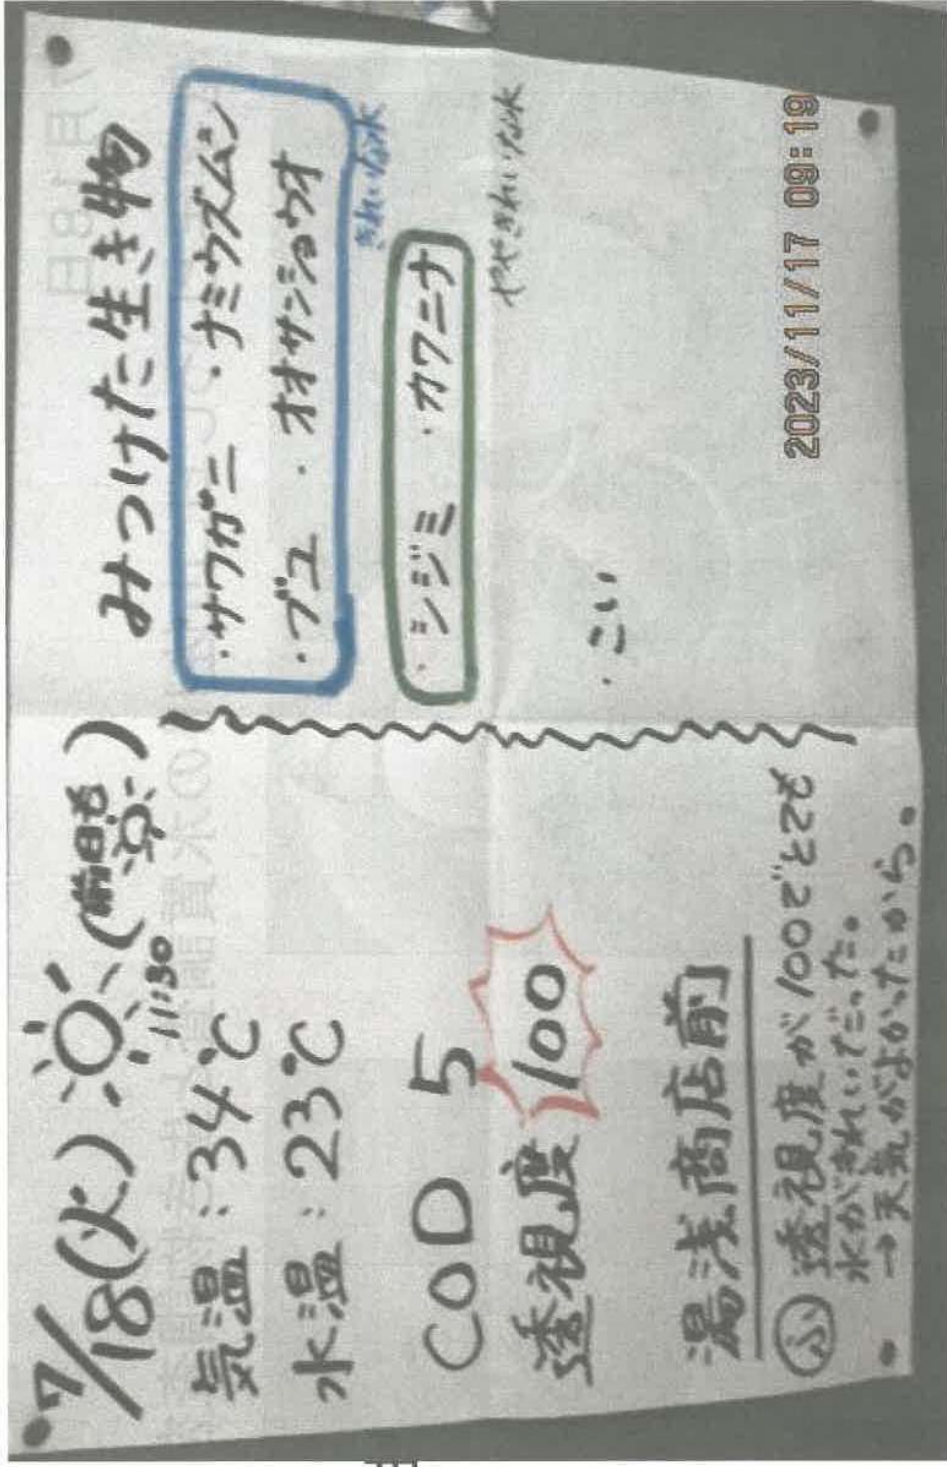 7/18(火) (前日も )
11:30
気温:34℃
水温:23℃
COD 5
透視度 100
湯浅商店前
ふ 透視度が100でとても
水がきれいだった。
→天気がよかったから。
みつけた生き物
・サワガニ ・ナミウズムシ
・ブユ ・オオサンショウウオ
きれいな水
・シジミ ・カワニナ
ややきれいな水
・こい
2023/11/17 09:19